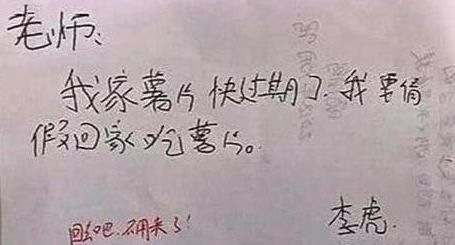 老师:
我家薯片快过期了.我要请
假回家吃薯片。
李虎.
回去吧.不用来了!